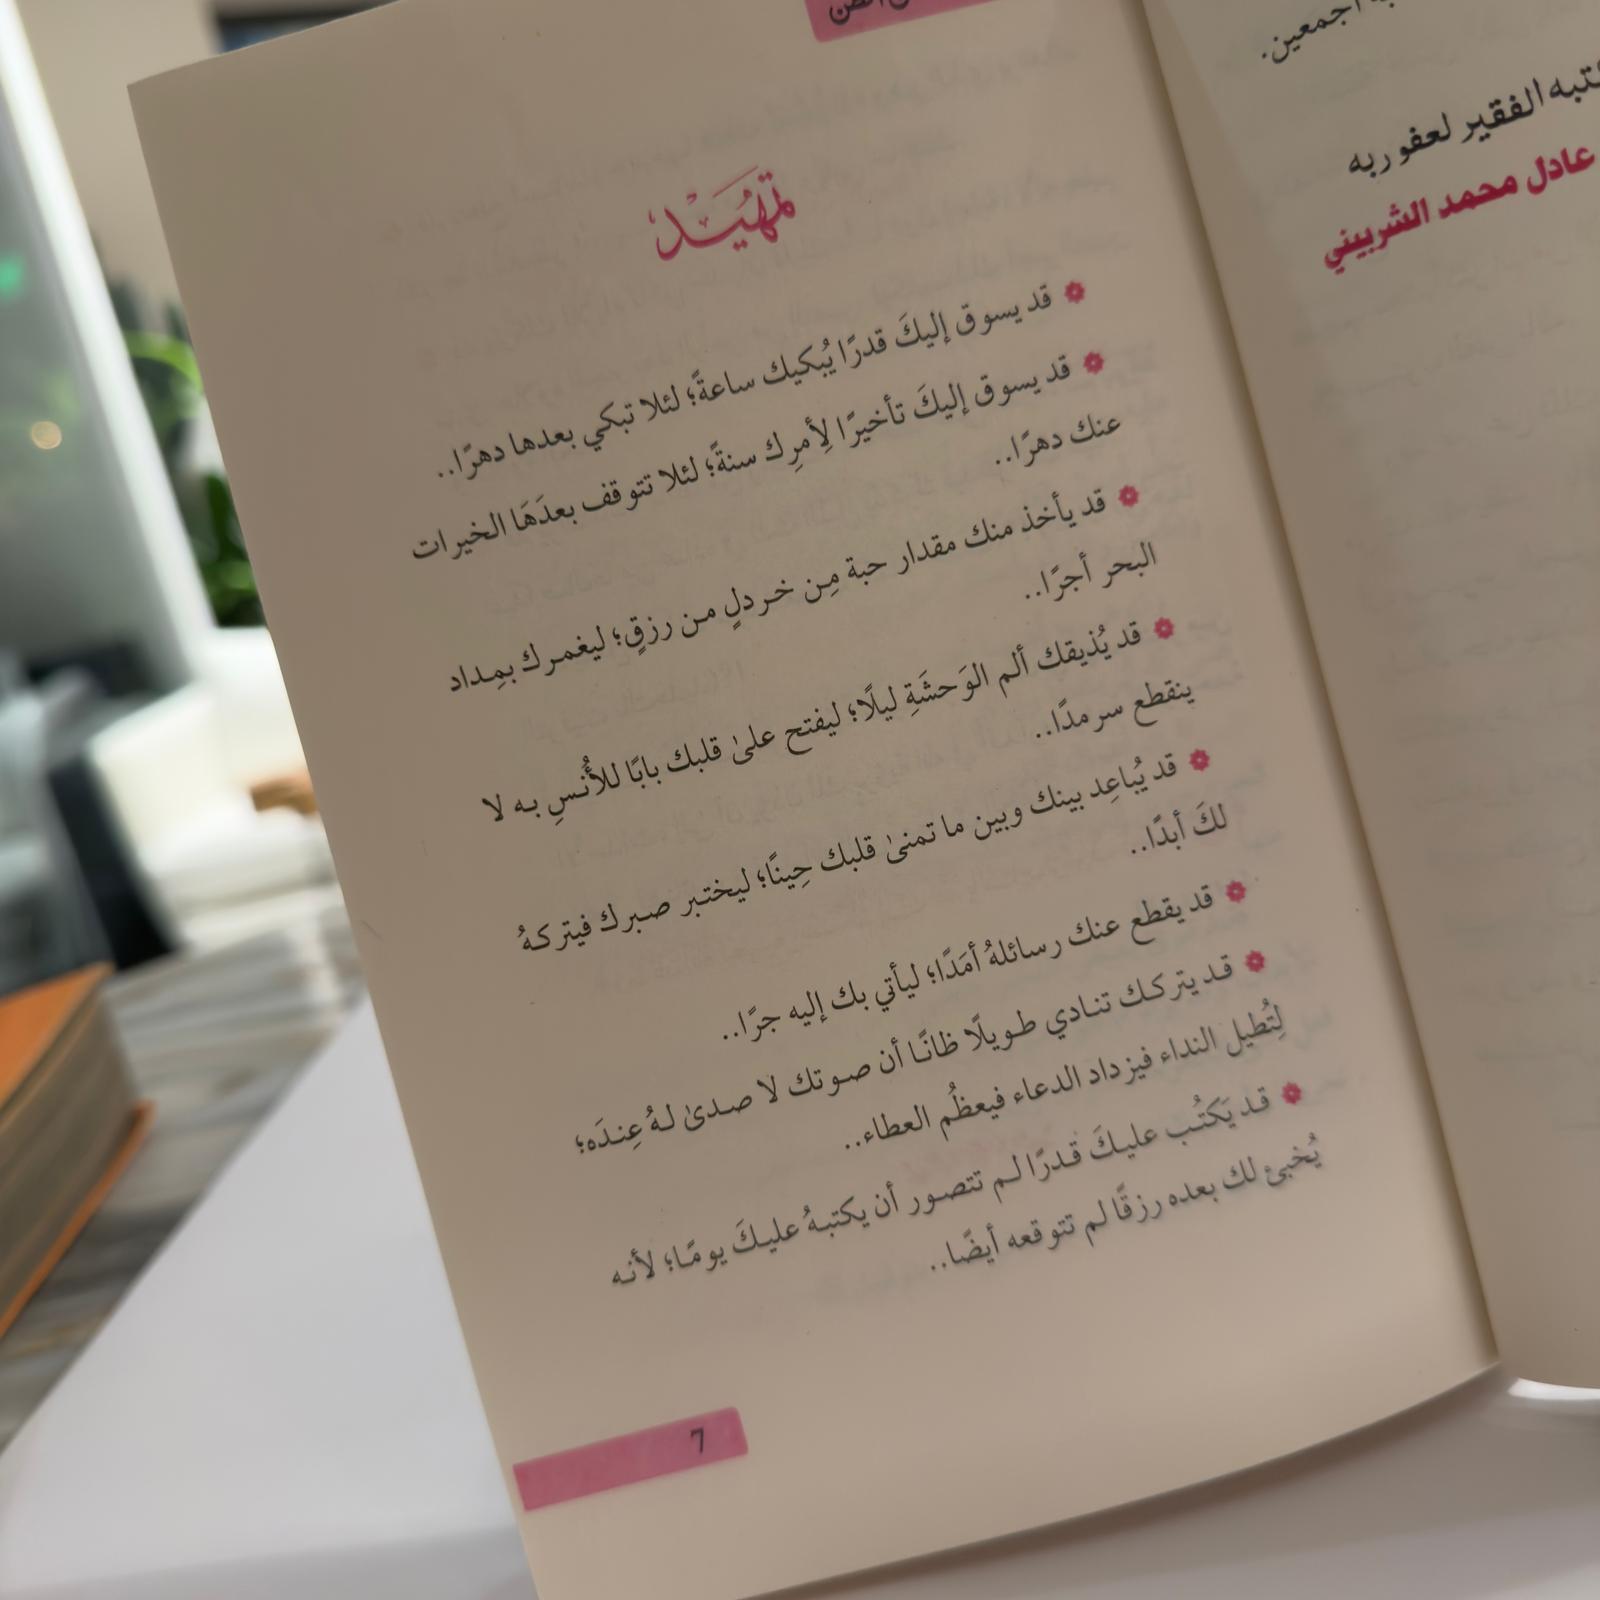 أجمعين.
الفقير لعفو ربه
عادل محمد الشربيني
الظن
تمهيد
قد يسوق إليكَ قدرًا يُبكيك ساعةً؛ لئلا تبكي بعدها دهرًا..
قد يسوق إليكَ تأخيرًا لِأمرِك سنةً؛ لئلا تتوقف بعدَهَا الخيرات
عنك دهرًا..
قد يأخذ منك مقدار حبة مِن خردلٍ من رزقٍ؛ ليغمرك بمِداد
البحر أجرًا..
قد يُذيقك ألم الوَحشَةِ ليلًا؛ ليفتح علىٰ قلبك بابًا للأُنسِ به لا
ينقطع سرمدًا..
قد يُباعِد بينك وبين ما تمنىٰ قلبك حِينًا؛ ليختبر صبرك فيتركهُ
لكَ أبدًا..
قد يقطع عنك رسائلهُ أمَدًا؛ ليأتي بك إليه جرًا..
قد يتركك تنادي طويلًا ظانًا أن صوتك لا صدىٰ لهُ عِندَه؛
لِتُطيل النداء فيزداد الدعاء فيعظُم العطاء..
قد يَكتُب عليكَ قدرًا لم تتصور أن يكتبهُ عليكَ يومًا؛ لأنه
يُخبئ لك بعده رزقًا لم تتوقعه أيضًا..
7